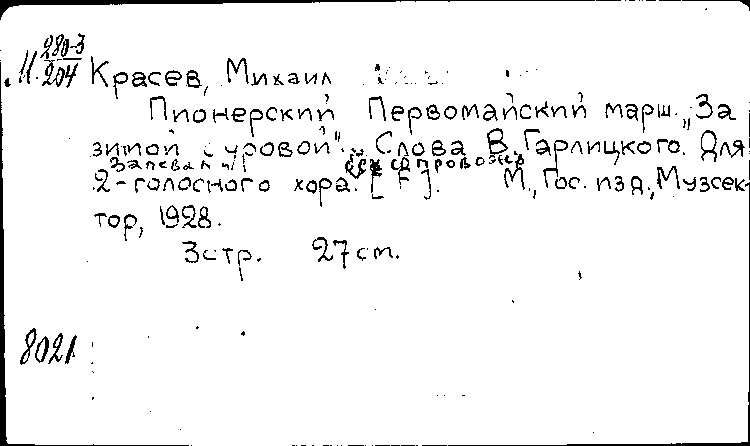 М 280-3/204
Красев, Михаил
Пионерский Первомайский марш. „За
зимой суровой". Слова В. Гарлицкого. Для
без сопровожд
2-голосного хора. [F]. М., Гос. изд., Музсек-
тор, 1928.
3 стр. 27 см.
8021